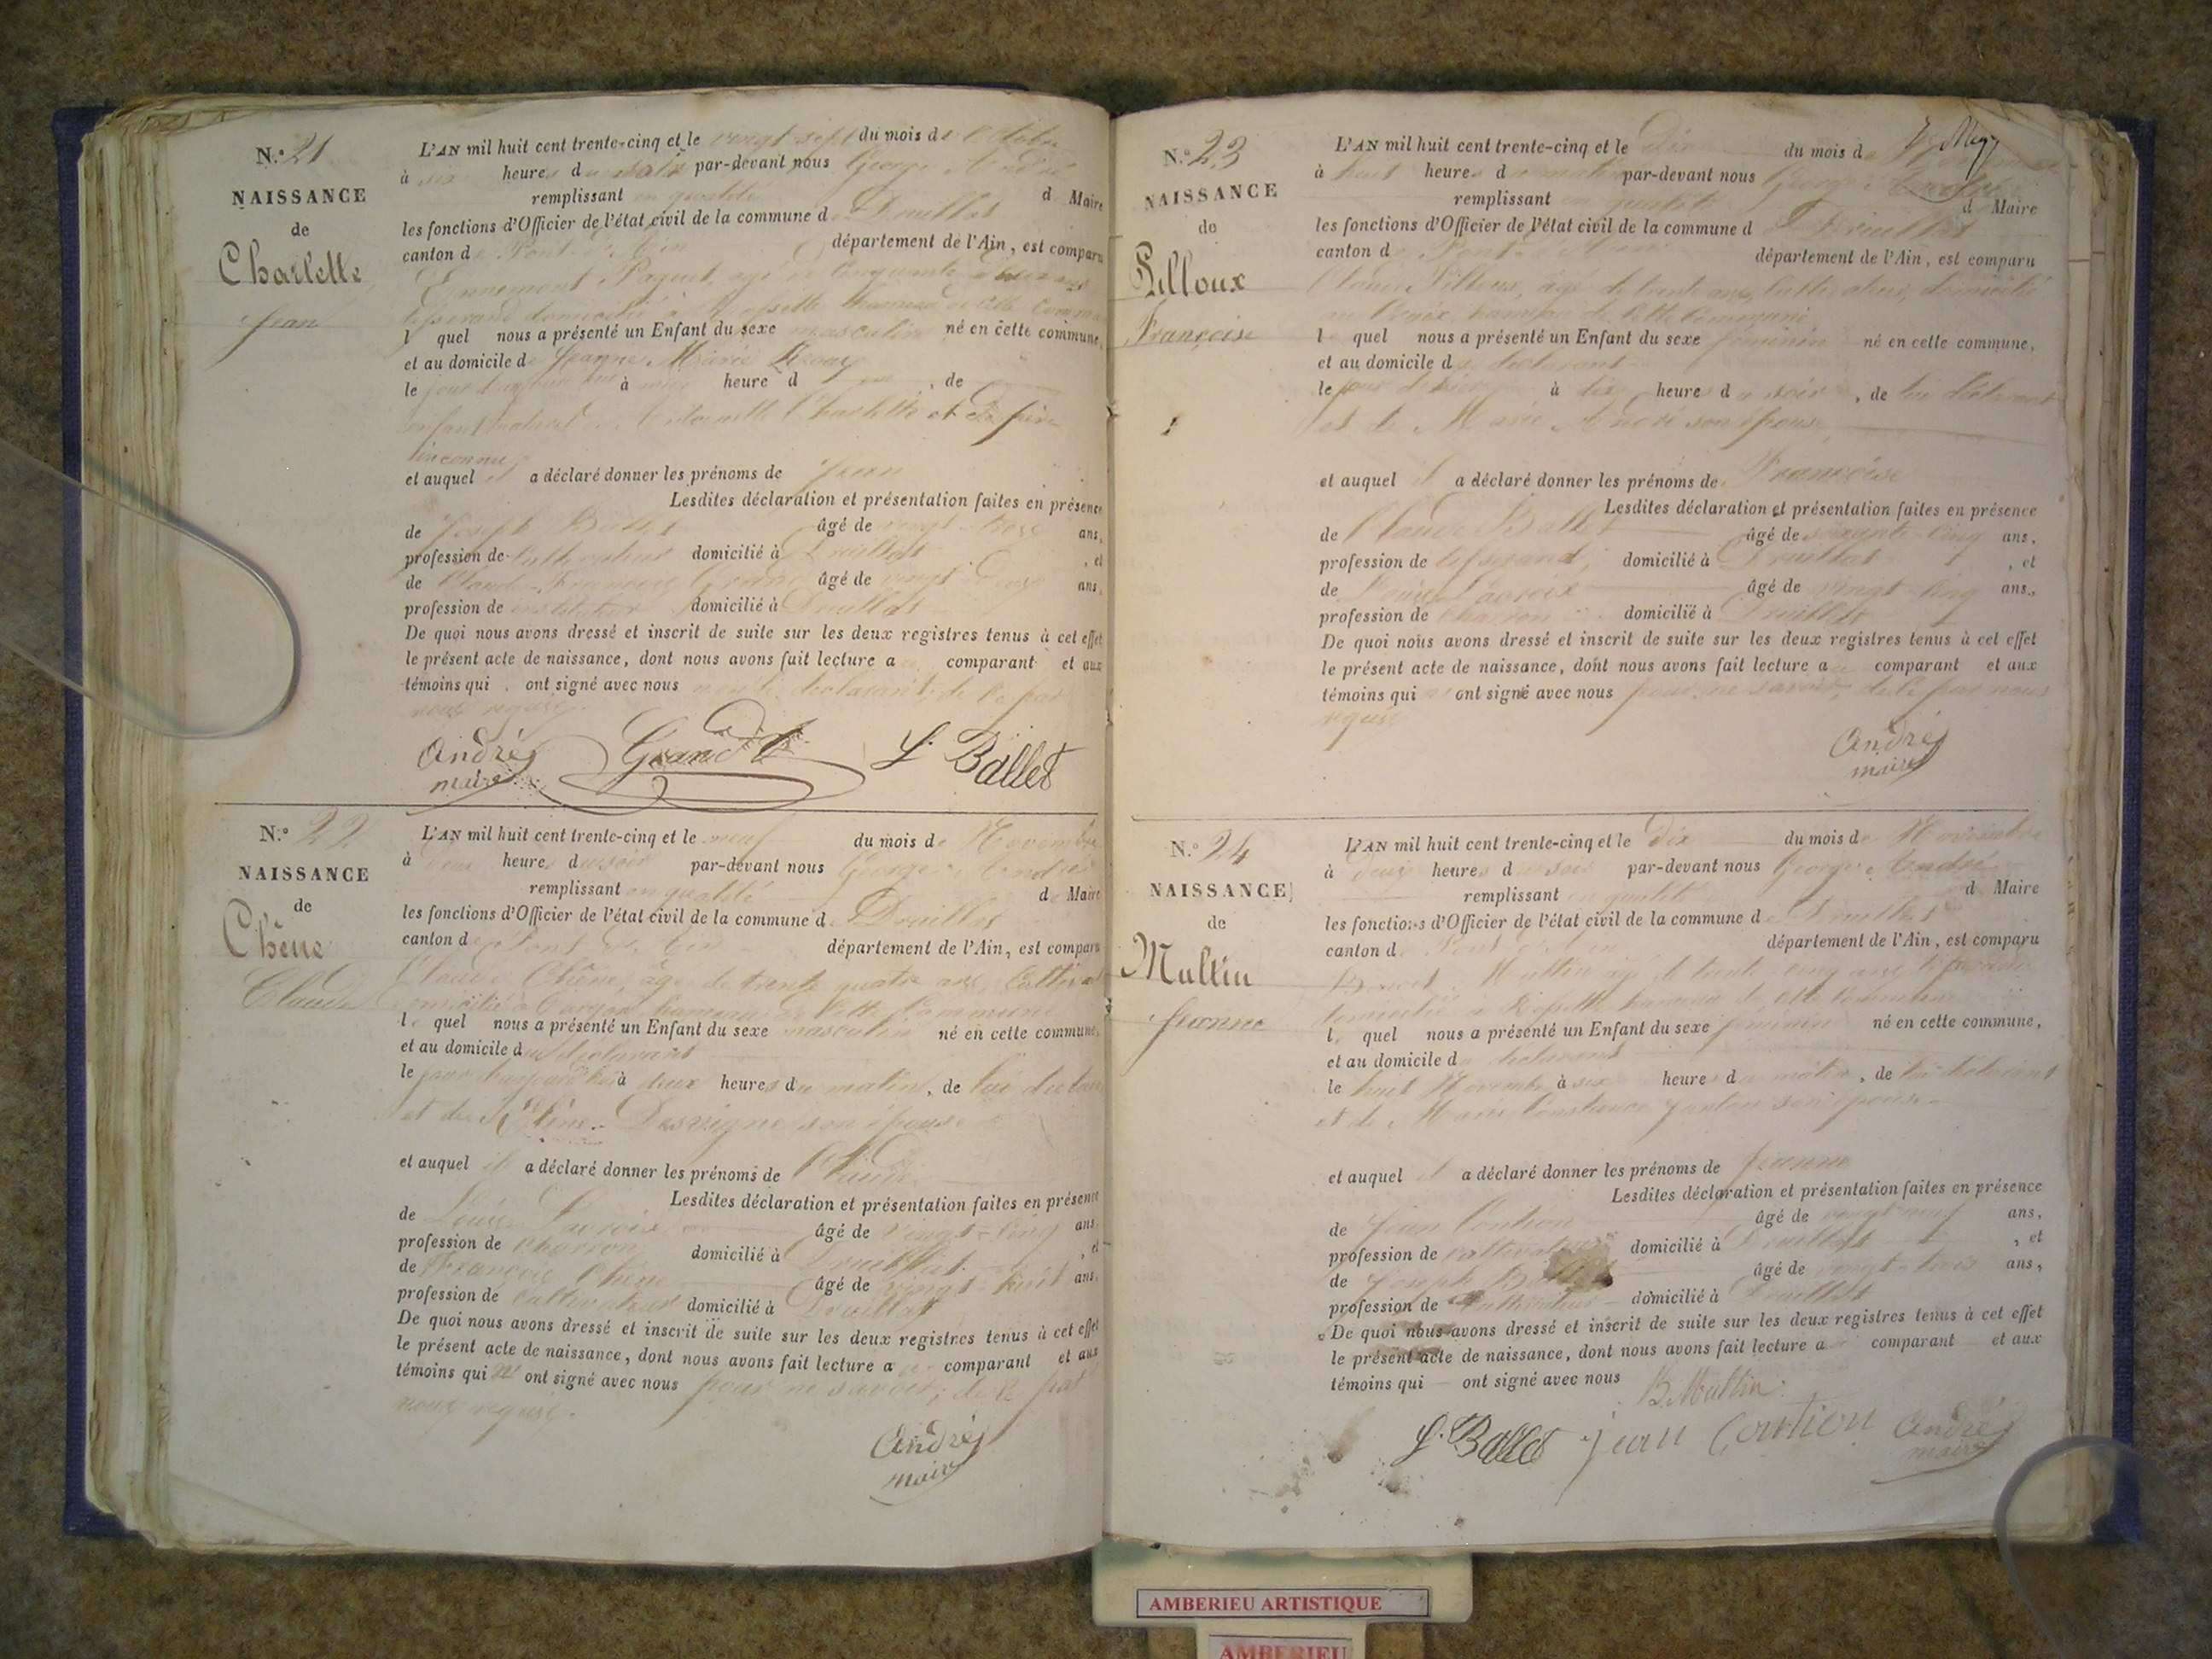 N.° 21
NAISSANCE
de
Charlette
Jean
L'AN mil huit cent trente-cinq et le vingt sept du mois d'Octobre
à six heures du soir par-devant nous George André
remplissant en qualité de Maire
les fonctions d'Officier de l'état civil de la commune de Druillat
canton de Pont d'Ain département de l'Ain, est comparu
Paquet, âgé de Cinquante
tisserand domicilié à Rossette hameau de cette Commune
lequel nous a présenté un Enfant du sexe masculin né en cette commune,
et au domicile de Jeanne Marie
le jour d'aujourd'hui à heure d , de
enfant naturel de Antoinette Charlette et de père
inconnu
et auquel il a déclaré donner les prénoms de Jean
Lesdites déclaration et présentation faites en présence
de Joseph Ballet âgé de vingt-trois ans,
profession de Cultivateur domicilié à Druillat , et
de Claude-François Grand âgé de vingt-deux ans,
profession de instituteur domicilié à Druillat
De quoi nous avons dressé et inscrit de suite sur les deux registres tenus à cet effet
le présent acte de naissance, dont nous avons fait lecture au comparant et aux
témoins qui ont signé avec nous non le déclarant de ce par
nous requis.
André Grand J. Ballet
maire
N.° 22
NAISSANCE
de
Chêne
Claude
L'AN mil huit cent trente-cinq et le neuf du mois de Novembre
à heures du soir par-devant nous George André
remplissant en qualité de Maire
les fonctions d'Officier de l'état civil de la commune de Druillat
canton de Pont d'Ain département de l'Ain, est comparu
Claude Chêne, âgé de trente quatre ans, Cultivateur
domicilié à hameau de cette Commune
lequel nous a présenté un Enfant du sexe masculin né en cette commune,
et au domicile du déclarant
le jour d'aujourd'hui à deux heures du matin, de lui déclarant
et de Desvigne son épouse
et auquel il a déclaré donner les prénoms de Claude
Lesdites déclaration et présentation faites en présence
de Louis Lavroix âgé de vingt-cinq ans,
profession de Charron domicilié à Druillat , et
de François Chêne âgé de vingt-huit ans,
profession de Cultivateur domicilié à Druillat
De quoi nous avons dressé et inscrit de suite sur les deux registres tenus à cet effet
le présent acte de naissance, dont nous avons fait lecture au comparant et aux
témoins qui n' ont signé avec nous pour ne savoir; de ce par
nous requis.
André
maire
N.° 23
NAISSANCE
de
Pilloux
Françoise
L'AN mil huit cent trente-cinq et le Dix du mois de
à huit heures du matin par-devant nous George André
remplissant en qualité de Maire
les fonctions d'Officier de l'état civil de la commune de Druillat
canton de Pont d'Ain département de l'Ain, est comparu
Claude Pilloux, âgé de trente ans, Cultivateur, domicilié
hameau de cette Commune
lequel nous a présenté un Enfant du sexe féminin né en cette commune,
et au domicile du déclarant
le jour d'hier à dix heures du soir , de lui déclarant
et de Marie André son épouse
et auquel il a déclaré donner les prénoms de Françoise
Lesdites déclaration et présentation faites en présence
de Claude Ballet âgé de soixante-cinq ans,
profession de tisserand, domicilié à Druillat , et
de Louis Lavroix âgé de vingt-cinq ans.,
profession de Charron domicilié à Druillat
De quoi nous avons dressé et inscrit de suite sur les deux registres tenus à cet effet
le présent acte de naissance, dont nous avons fait lecture au comparant et aux
témoins qui n' ont signé avec nous pour ne savoir; de ce par nous
requis
André
maire
N.° 24
NAISSANCE
de
Multin
Jeanne
L'AN mil huit cent trente-cinq et le Dix du mois de Novembre
à deux heures du soir par-devant nous George André
remplissant en qualité de Maire
les fonctions d'Officier de l'état civil de la commune de Druillat
canton de Pont d'Ain département de l'Ain, est comparu
Multin âgé de trente cinq ans, tisserand
domicilié à Rossette hameau de cette Commune
lequel nous a présenté un Enfant du sexe féminin né en cette commune,
et au domicile du déclarant
le huit Novembre à six heures du matin , de lui déclarant
et de Marie Constance Janton son épouse
et auquel il a déclaré donner les prénoms de Jeanne
Lesdites déclaration et présentation faites en présence
de Jean Contion âgé de vingt neuf ans,
profession de cultivateur domicilié à Druillat , et
de Joseph Ballet âgé de vingt-trois ans,
profession de Cultivateur domicilié à Druillat
De quoi nous avons dressé et inscrit de suite sur les deux registres tenus à cet effet
le présent acte de naissance, dont nous avons fait lecture au comparant et aux
témoins qui ont signé avec nous
B. Multin
J. Ballet Jean Contion André
maire
AMBERIEU ARTISTIQUE
AMBERIEU